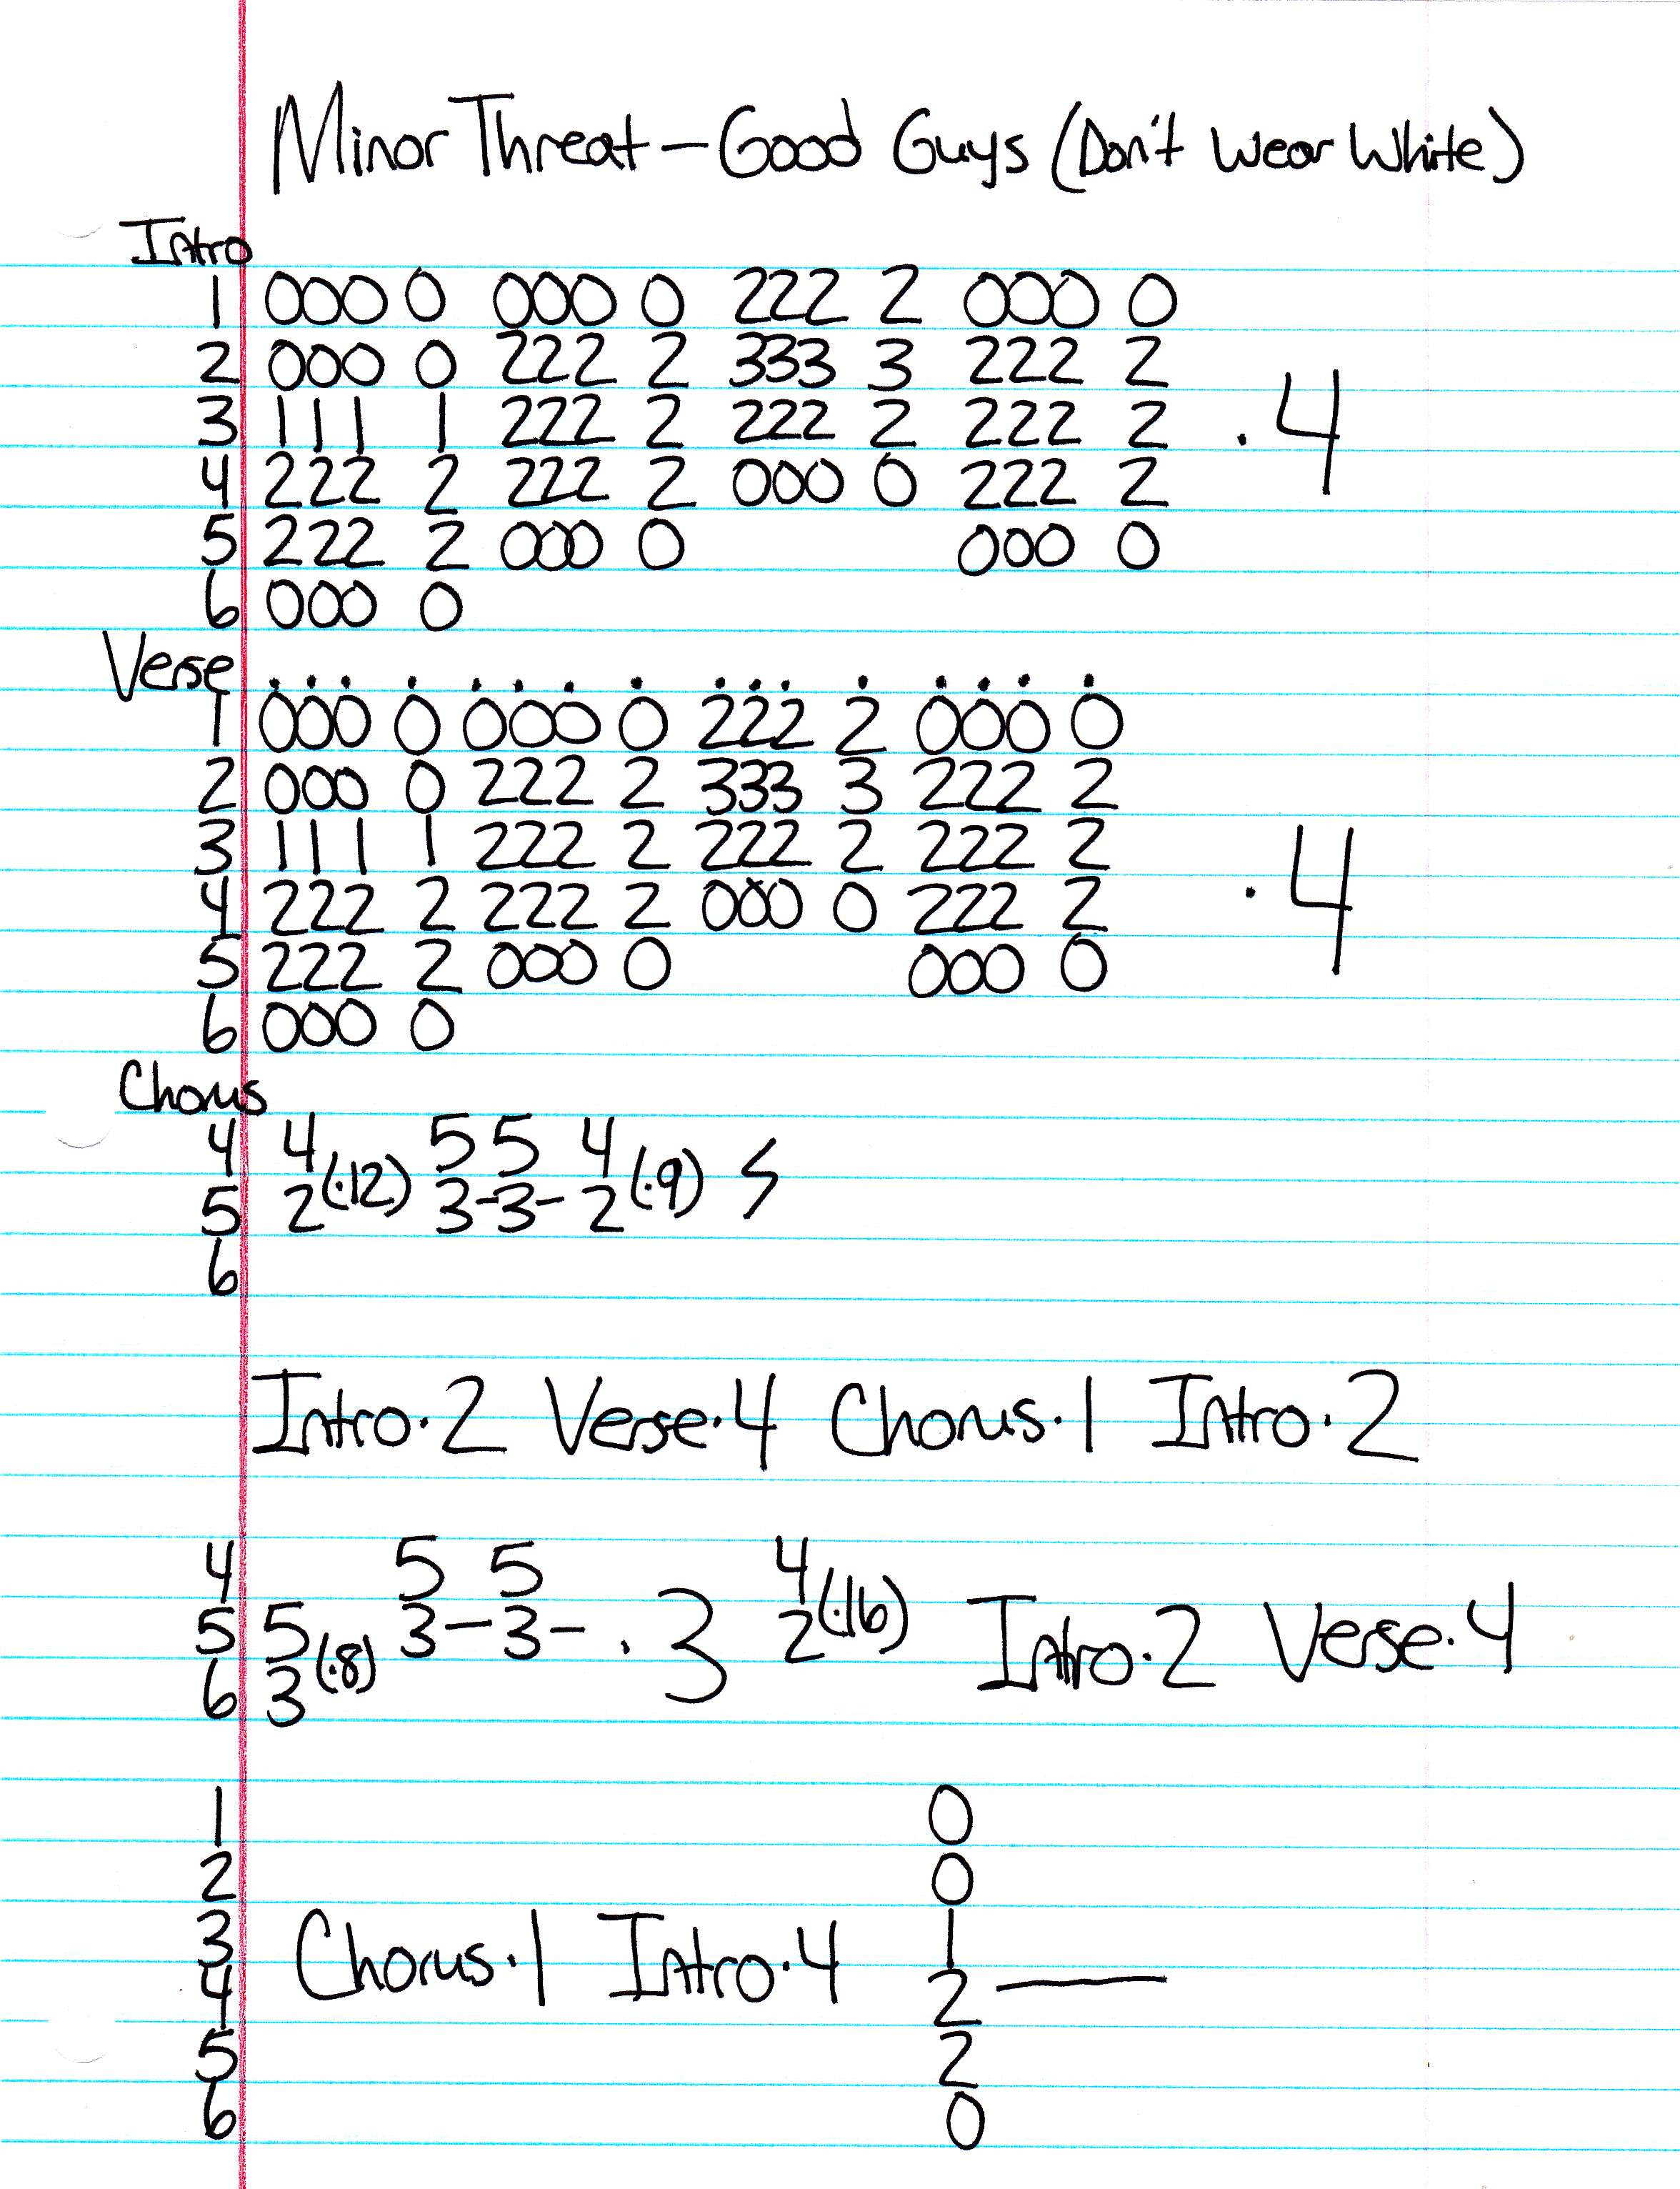 Minor Threat - Good Guys (Don't Wear White)
Intro
1 000 0 000 0 222 2 000 0
2 000 0 222 2 333 3 222 2
3 111 1 222 2 222 2 222 2 ·4
4 222 2 222 2 000 0 222 2
5 222 2 000 0 000 0
6 000 0
Verse . . . . . . . . . . . . . . . .
1 000 0 000 0 222 2 000 0
2 000 0 222 2 333 3 222 2
3 111 1 222 2 222 2 222 2
4 222 2 222 2 000 0 222 2 ·4
5 222 2 000 0 000 0
6 000 0
Chorus
4 4 5 5 4
5 2 (·12) 3-3- 2 (·9)
6
Intro·2 Verse·4 Chorus·1 Intro·2
4 5 5 4
5 5 3-3- ·3 2 (·16) Intro·2 Verse·4
6 3 (·8)
1 0
2 0
3 1
4 Chorus·1 Intro·4 2 —
5 2
6 0